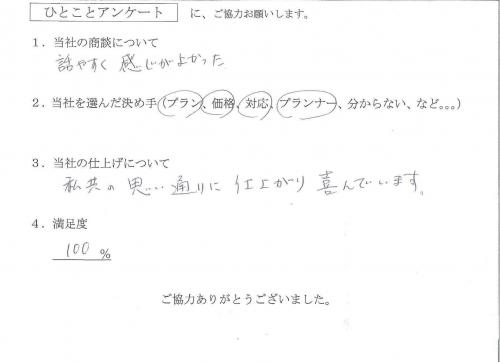 ひとことアンケート に、ご協力お願いします。
１．当社の商談について
話やすく 感じがよかった
２．当社を選んだ決め手（プラン、価格、対応、プランナー、分からない、など。。。）
３．当社の仕上げについて
私共の 思い通りに 仕上がり 喜んでいます。
４．満足度
100 %
ご協力ありがとうございました。